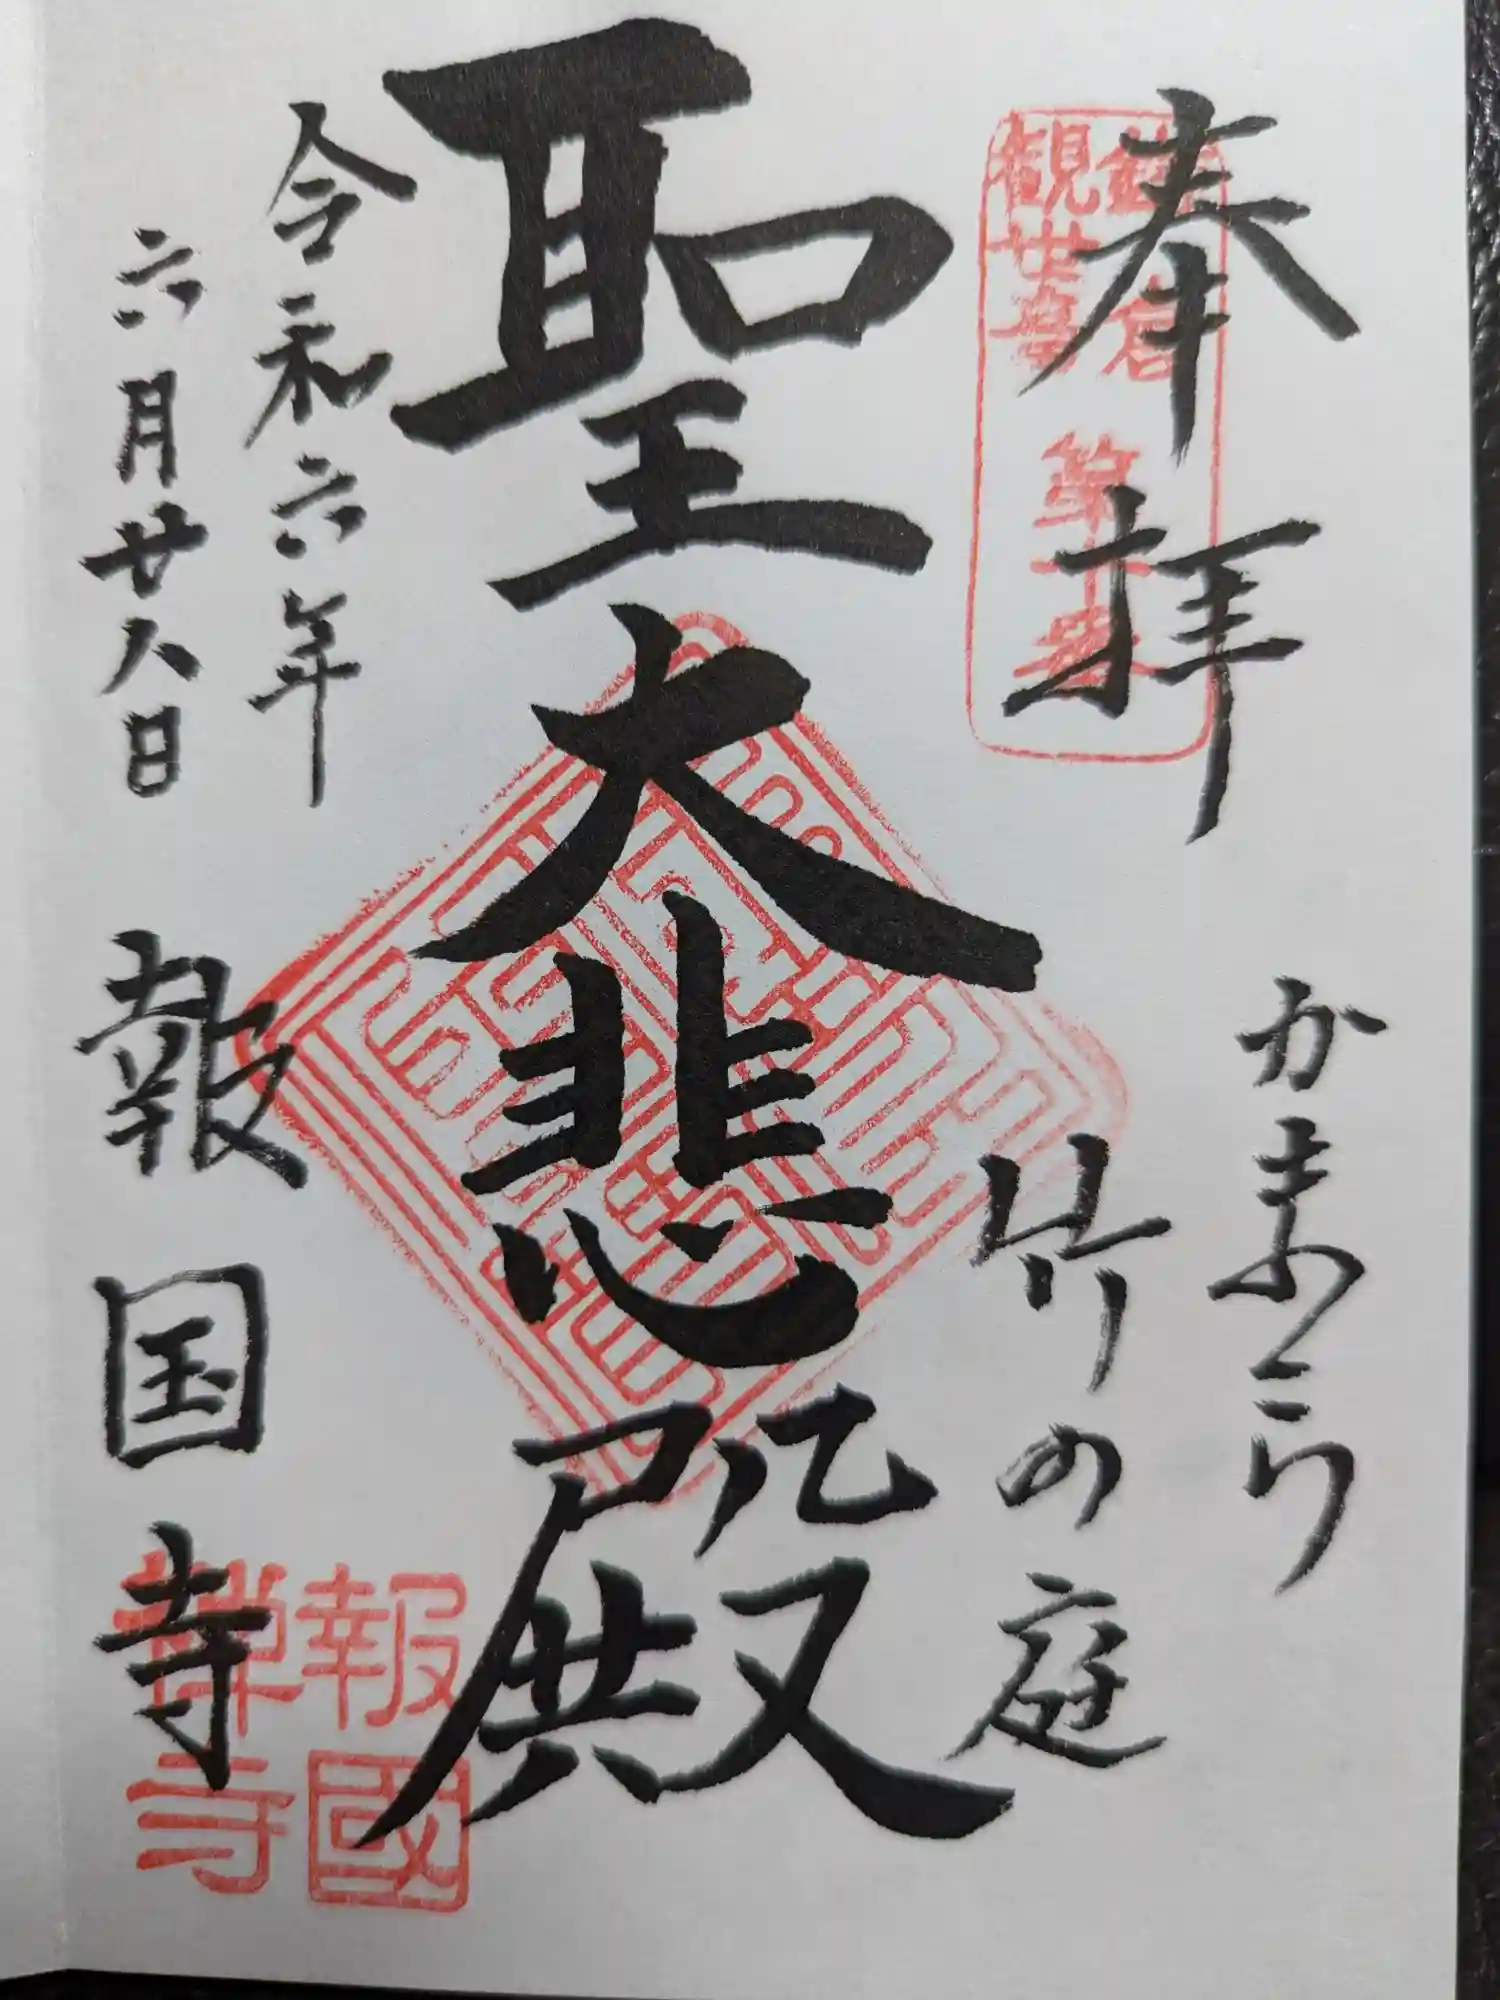 奉拝
鎌倉
観世音
第十番
かまくら
竹の庭
聖大悲殿
令和六年
六月廿八日
報国寺
報國
禅寺